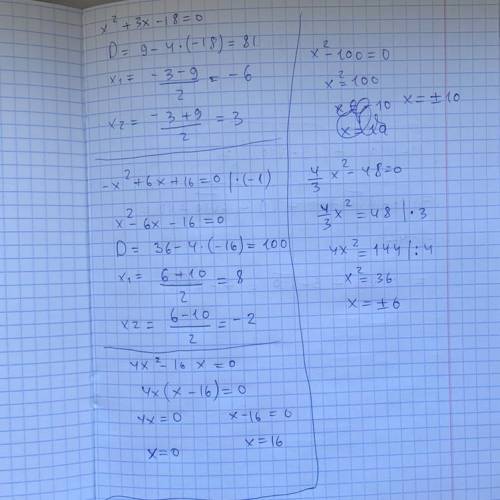 x² + 3x - 18 = 0
D = 9 - 4·(-18) = 81
x₁ = (-3-9)/2 = -6
x₂ = (-3+9)/2 = 3
-x² + 6x + 16 = 0 |·(-1)
x² - 6x - 16 = 0
D = 36 - 4·(-16) = 100
x₁ = (6+10)/2 = 8
x₂ = (6-10)/2 = -2
4x² - 16x = 0
4x(x - 16) = 0
4x = 0 x - 16 = 0
x = 0 x = 16
x² - 100 = 0
x² = 100
x = ±10
4/3 x² - 48 = 0
4/3 x² = 48 |·3
4x² = 144 |:4
x² = 36
x = ±6